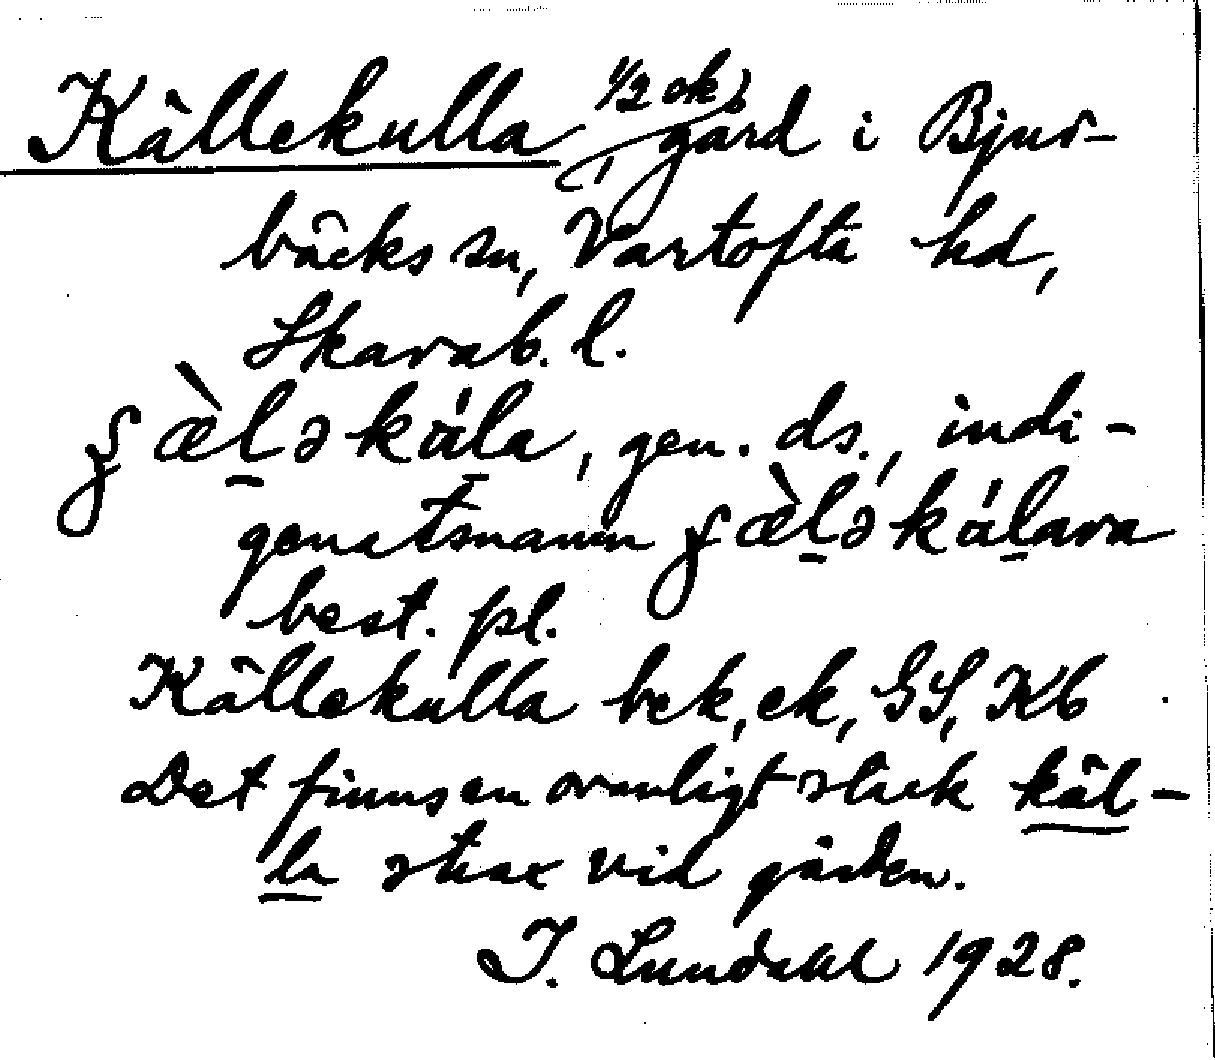 Källekulla 1/2 ek, gård i Bjur-
bäcks sn, Vartofta hd,
Skarab. l.
ʂæ̀l̠əkál̠a, gen. ds., indi-
genatsnamn ʂæ̀l̠əkál̠ara
best. pl.
Källekulla bek, ek, GS, Kb
Det finns en ovanligt stark käl-
la strax vid gården.
I. Lundahl 1928.